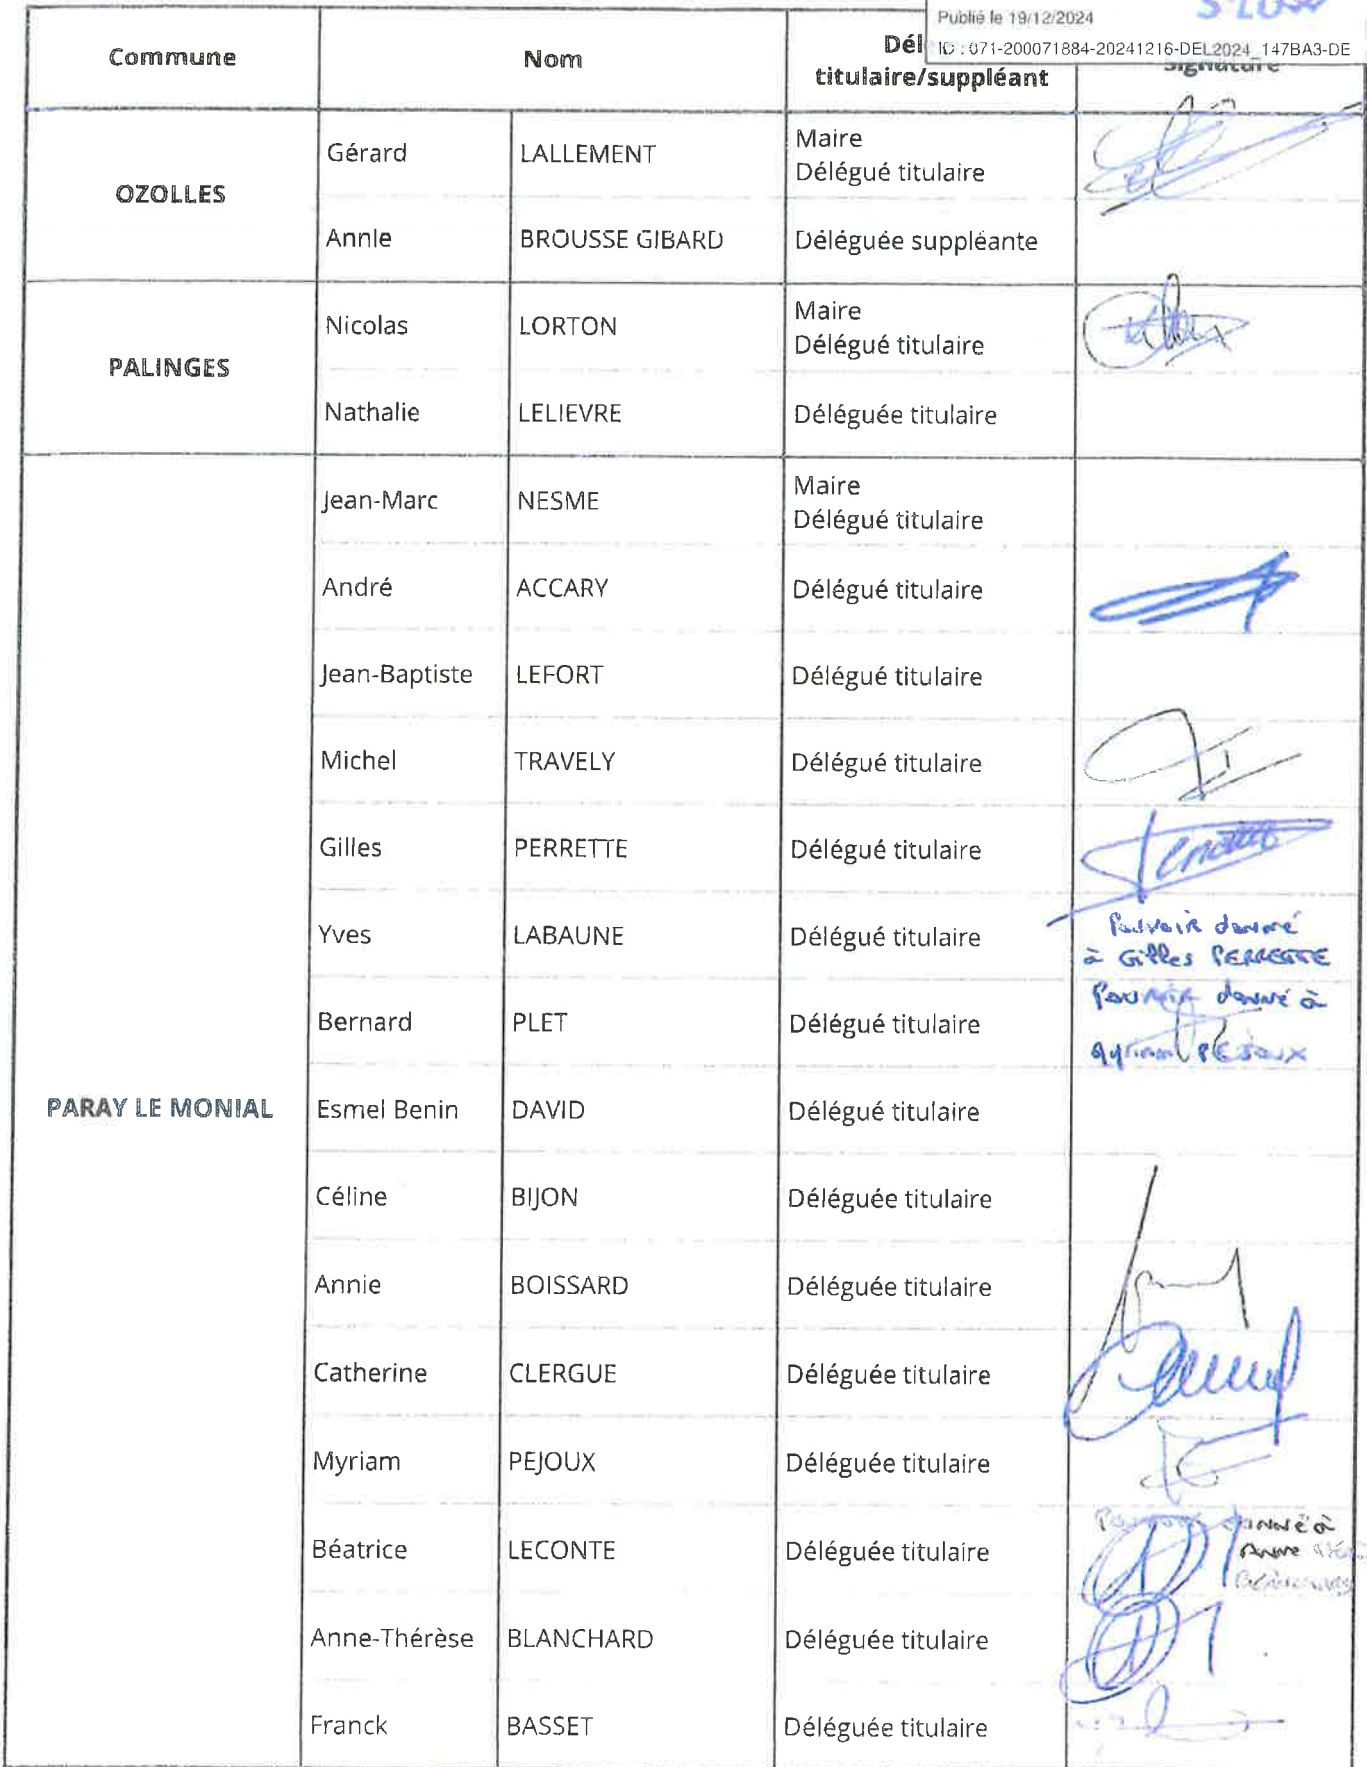 Publié le 19/12/2024
ID : 071-200071884-20241216-DEL2024_147BA3-DE
Commune Nom titulaire/suppléant Signature
OZOLLES
Gérard LALLEMENT Maire
Délégué titulaire
Annie BROUSSE GIBARD Déléguée suppléante
PALINGES
Nicolas LORTON Maire
Délégué titulaire
Nathalie LELIEVRE Déléguée titulaire
PARAY LE MONIAL
Jean-Marc NESME Maire
Délégué titulaire
André ACCARY Délégué titulaire
Jean-Baptiste LEFORT Délégué titulaire
Michel TRAVELY Délégué titulaire
Gilles PERRETTE Délégué titulaire
Yves LABAUNE Délégué titulaire Pouvoir donné
à Gilles PERRETTE
Bernard PLET Délégué titulaire Pouvoir donné à
Myriam PEJOUX
Esmel Benin DAVID Délégué titulaire
Céline BIJON Déléguée titulaire
Annie BOISSARD Déléguée titulaire
Catherine CLERGUE Déléguée titulaire
Myriam PEJOUX Déléguée titulaire
Béatrice LECONTE Déléguée titulaire Pouvoir donné à
Anne
Anne-Thérèse BLANCHARD Déléguée titulaire
Franck BASSET Déléguée titulaire